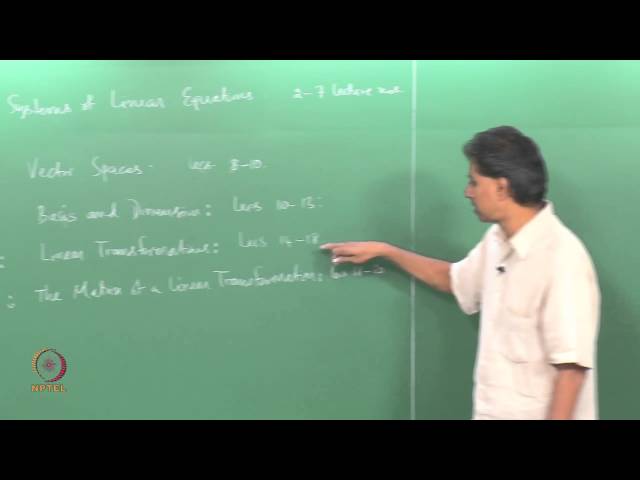 Systems of Linear Equations 2-7 lecture
Vector Spaces. Lecs 8-10.
Basis and Dimension: Lecs 10-13:
: Linear Transformations: Lecs 14-18
: The Matrix of a Linear Transformation:
NPTEL